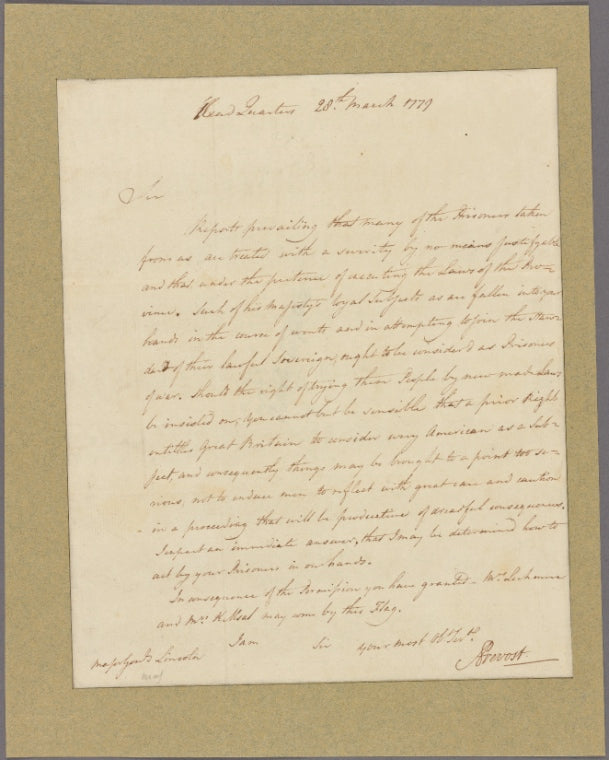 Head Quarters 28th March 1779
Sir
Reports prevailing that many of the Prisoners taken
from us are treated with a severity by no means justifyable
and that under the pretence of executing the Laws of the Pro-
vince. Such of his Majesty's loyal Subjects as are fallen into your
hands in the course of events and in attempting to join the Stan-
dard of their lawful Sovereign, ought to be consider'd as Prisoners
of war. Should the right of trying these People by new made Laws
be insisted on, you cannot but be sensible that a prior Right
entitles Great Britain to consider every American as a Sub-
ject, and consequently things may be brought to a point too se-
rious, not to induce men to reflect with great care and caution
in a proceeding that will be productive of consequences.
I expect an immediate answer, that I may be determined how to
act by your Prisoners in our hands.
In consequence of the Permission you have granted - Mrs. Lechmere
and Mrs. may come by this Flag.
I am Sir your most Obt. Servt.
Major Genl. Lincoln
A Prevost